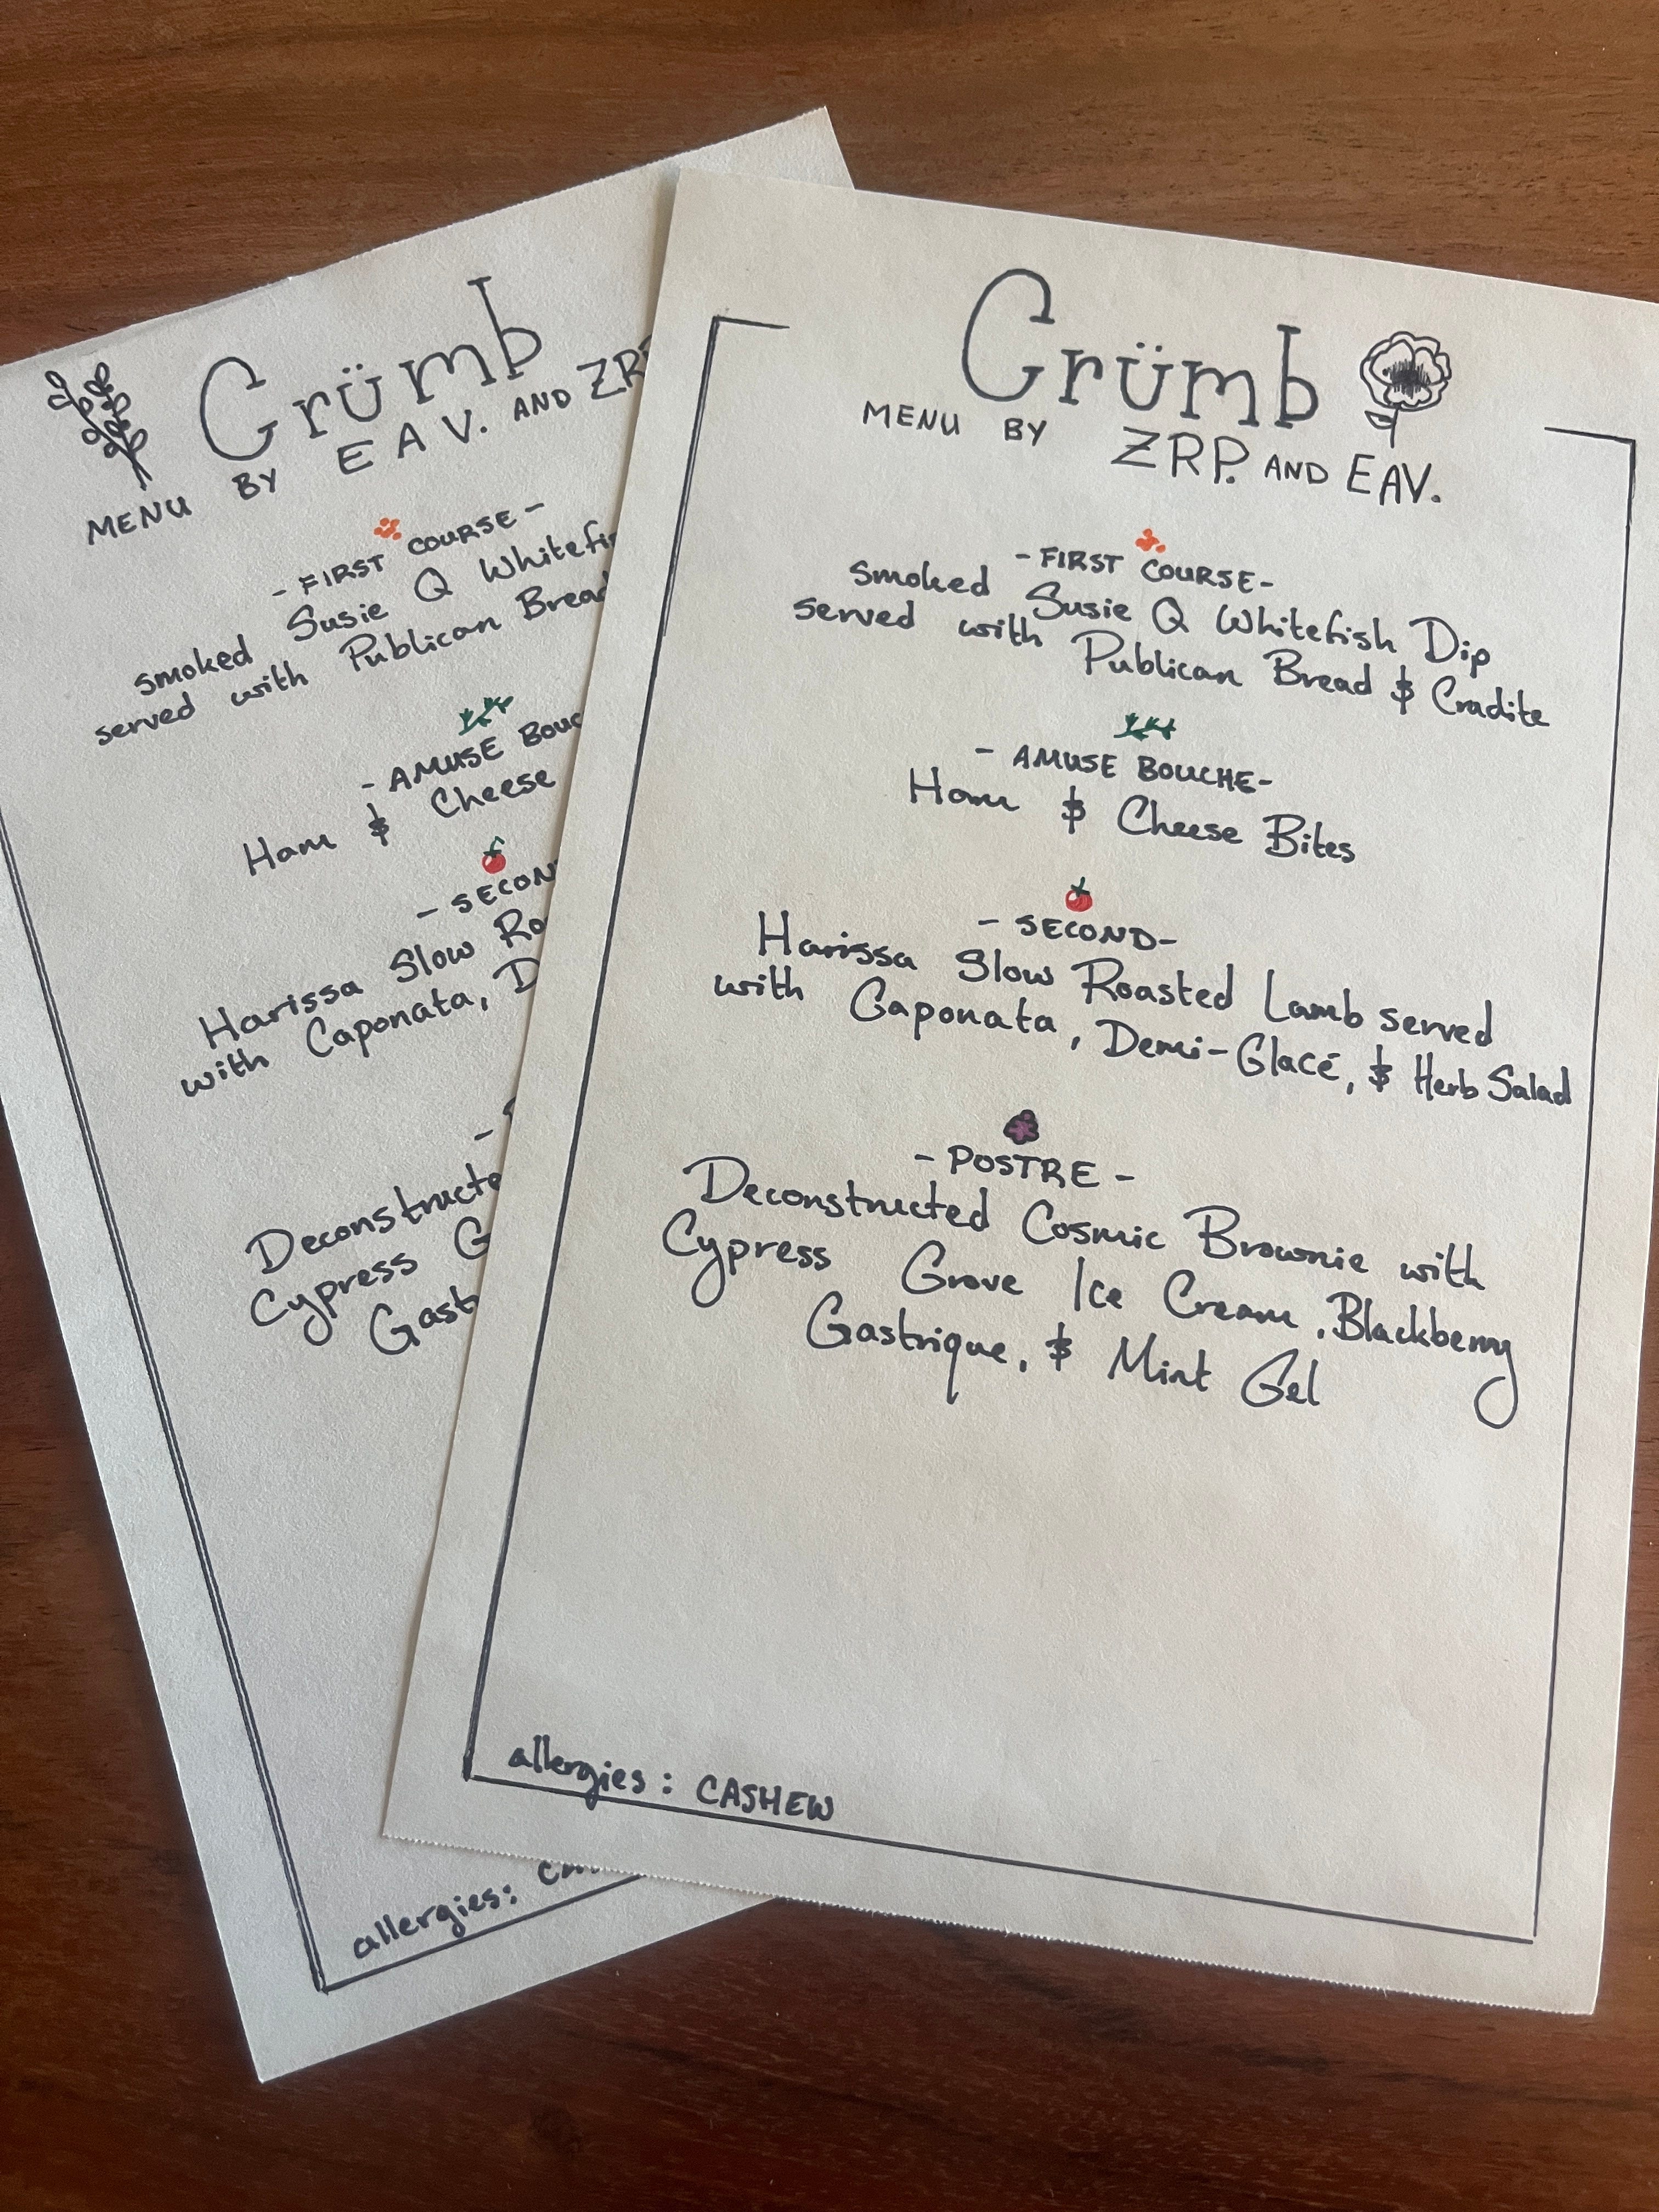 Grümb
MENU BY EAV. AND ZRP
-FIRST COURSE-
smoked Susie Q Whitefis
served with Publican Bread
-AMUSE BOUC
Ham & Cheese
-SECON
Harissa Slow Ro
with Caponata, D
-
Deconstructe
Cypress G
Gast
allergies:
Grümb
MENU BY ZRP. AND EAV.
-FIRST COURSE-
smoked Susie Q Whitefish Dip
served with Publican Bread & Crudite
-AMUSE BOUCHE-
Ham & Cheese Bites
-SECOND-
Harissa Slow Roasted Lamb served
with Caponata, Demi-Glacé, & Herb Salad
-POSTRE-
Deconstructed Cosmic Brownie with
Cypress Grove Ice Cream, Blackberry
Gastrique, & Mint Gel
allergies: CASHEW